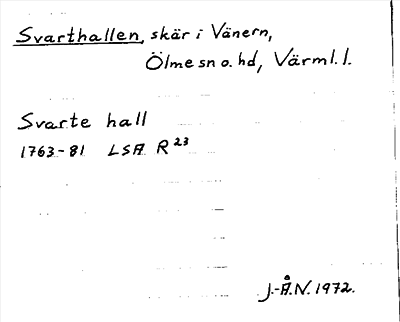 Svarthallen, skär i Vänern,
Ölme sn o. hd, Värml. l.
Svarte hall
1763-81 LSA R 23
J.-Å.N. 1972.